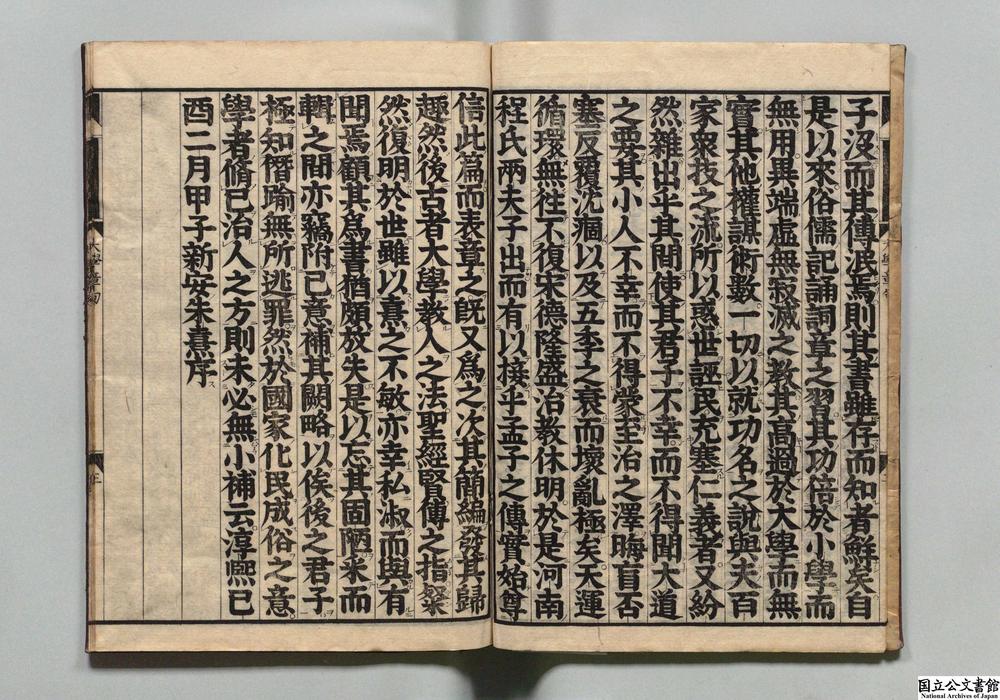 子沒而其傳泯焉則其書雖存而知者鮮矣自
是以來俗儒記誦詞章之習其功倍於小學而
無用異端虛無寂滅之教其高過於大學而無
實其他權謀術數一切以就功名之說與夫百
家衆技之流所以惑世誣民充塞仁義者又紛
然雜出乎其間使其君子不幸而不得聞大道
之要其小人不幸而不得蒙至治之澤晦盲否
塞反覆沈痼以及五季之衰而壞亂極矣天運
循環無往不復宋德隆盛治教休明於是河南
程氏兩夫子出而有以接乎孟子之傳實始尊
信此篇而表章之既又爲之次其簡編發其歸
趣然後古者大學教人之法聖經賢傳之指粲
然復明於世雖以熹之不敏亦幸私淑而與有
聞焉顧其爲書猶頗放失是以忘其固陋采而
輯之間亦竊附己意補其闕略以俟後之君子
極知僭踰無所逃罪然於國家化民成俗之意
學者脩已治人之方則未必無小補云淳熙己
酉二月甲子新安朱熹序
大學章句
国立公文書館
National Archives of Japan